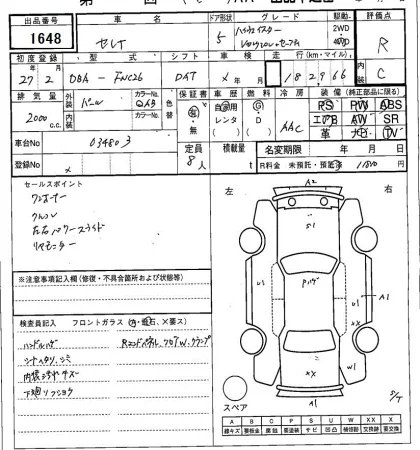 出品番号
1648
車名
セレナ
ドア形状
5
グレード
ハイウェイスター
Vセレクション+セーフティ
駆動
2WD
4WD
評価点
R
初度登録
27年2月
型式
DBA-FNC26
シフト
DAT
車検
X 年 月
走行(km・マイル)
182966
内装
C
排気量
2000
c.c.
外装
パール
カラーNo.
QAB
色替
内装
カラーNo.
保証書
有・無
車歴
自家用
レンタ
燃料
G
D
冷房
AAC
装備(純正部品に限る)
PS PW ABS
エアB AW SR
革 ナビ TV
車台No.
034803
登録No.
x
定員
8人
積載量
t
名変期限 年 月 日
R料金 未預託・預託済 11810
セールスポイント
ワンオーナー
クルコン
左右パワースライド
リヤモニター
※注意事項記入欄(修復・不具合箇所および状態等)
検査員記入 フロントガラス (キズ・飛石・X要ス)
ハンドルハゲ
シートヘタリ、シミ
内装ヨゴレキズ
下廻りフショク
左
右
A2
S1
U1
U1
A1
W1
XX
XX
A1
スペア
A B C P S U W X XX
線キズ 要板金 腐蝕 要塗装 サビ 凹凸 補修跡 交換跡 要交換